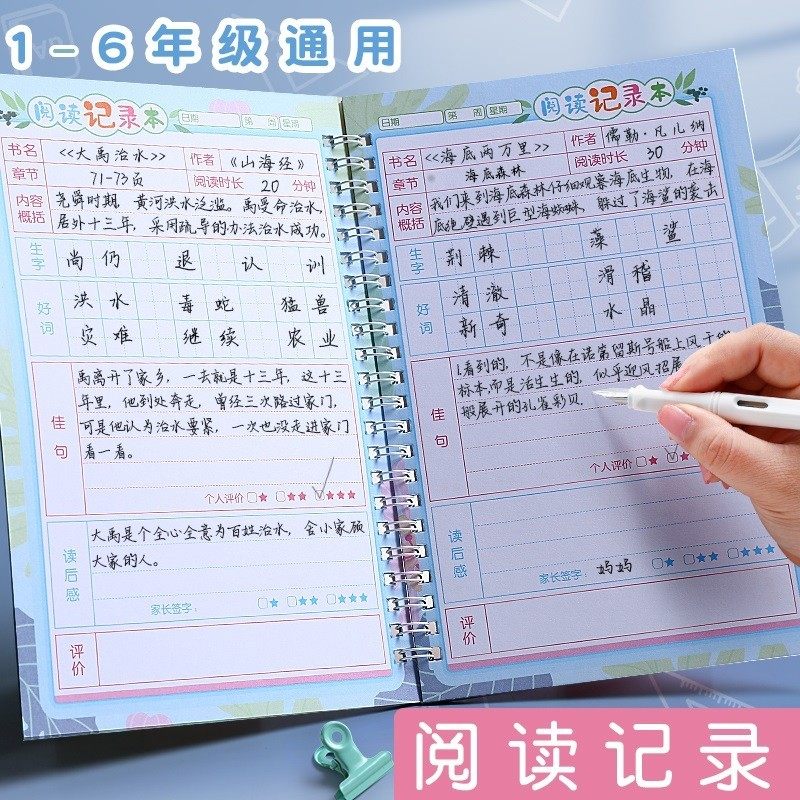 1-6年级通用
阅读记录本
日期 第 周 星期
书名 《大禹治水》 作者 《山海经》
章节 71-73页 阅读时长 20 分钟
内容概括 尧舜时期，黄河洪水泛滥。禹受命治水，
居外十三年，采用疏导的办法治水成功。
生字 尚 仍 退 认 训
好词 洪水 毒蛇 猛兽
灾难 继续 农业
佳句 禹离开了家乡，一去就是十三年，这十三
年里，他到处奔走，曾经三次路过家门，
可是他认为治水要紧，一次也没走进家门
看一看。
个人评价 ★ ★★ ★★★★
读后感 大禹是个全心全意为百姓治水，舍小家顾
大家的人。
家长签字： ★ ★★ ★★★★
评价
阅读记录本
日期 第 周 星期
书名 《海底两万里》 作者 儒勒·凡儿纳
章节 海底森林 阅读时长 30 分钟
内容概括 我们来到海底森林仔细观察海底生物，在海
底绝壁遇到巨型海蜘蛛，躲过了海鲨的袭击
生字 荆 棘 藻 鲨
好词 清澈 滑稽
新奇 水晶
佳句 1.看到的，不是像在诺第留斯号船上风干的
标本，而是活生生的，似乎迎风招展
般展开的孔雀彩贝.
个人评价 ★
读后感
家长签字： 妈妈 ★ ★★ ★★★★
评价
阅读记录